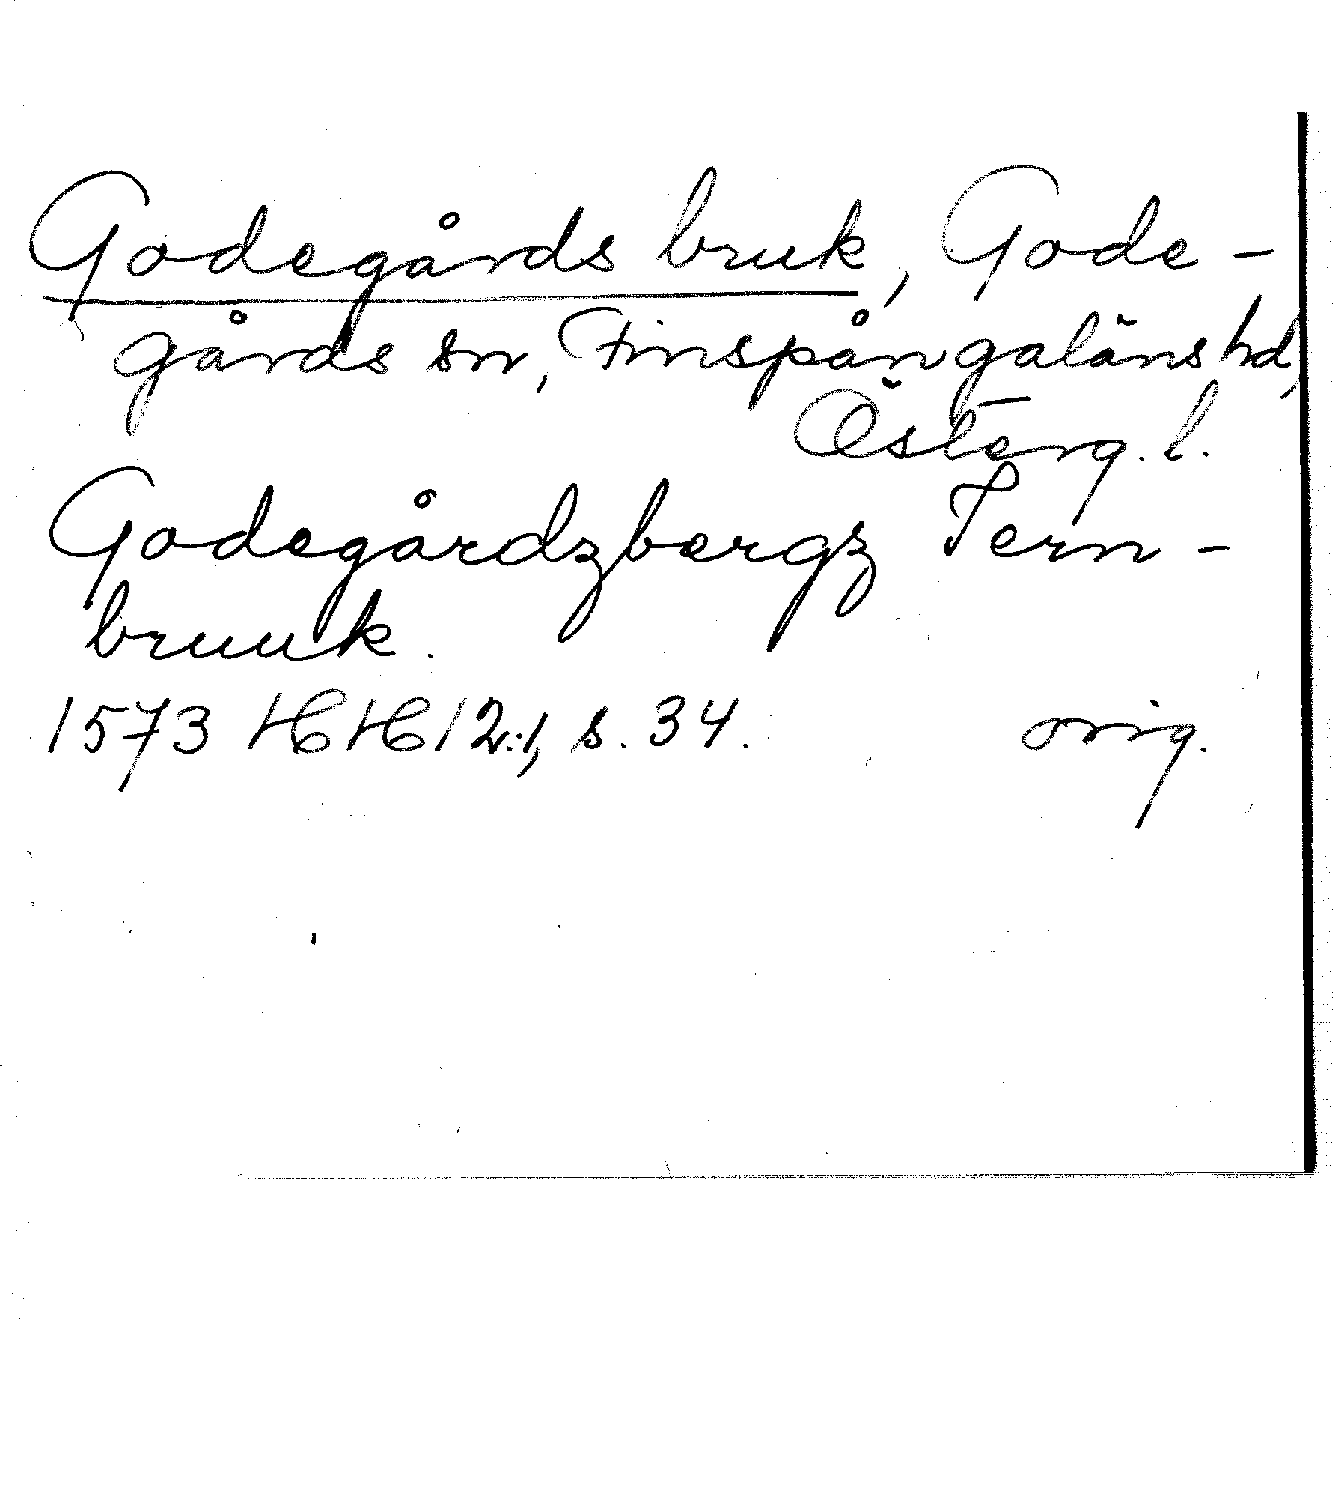 Godegårds bruk, Gode-
gårds sn, Finspångaläns hd,
Österg. l.
Godegårdzbergz Jern-
bruuk.
1573 HH 12:1, s. 34. orig.